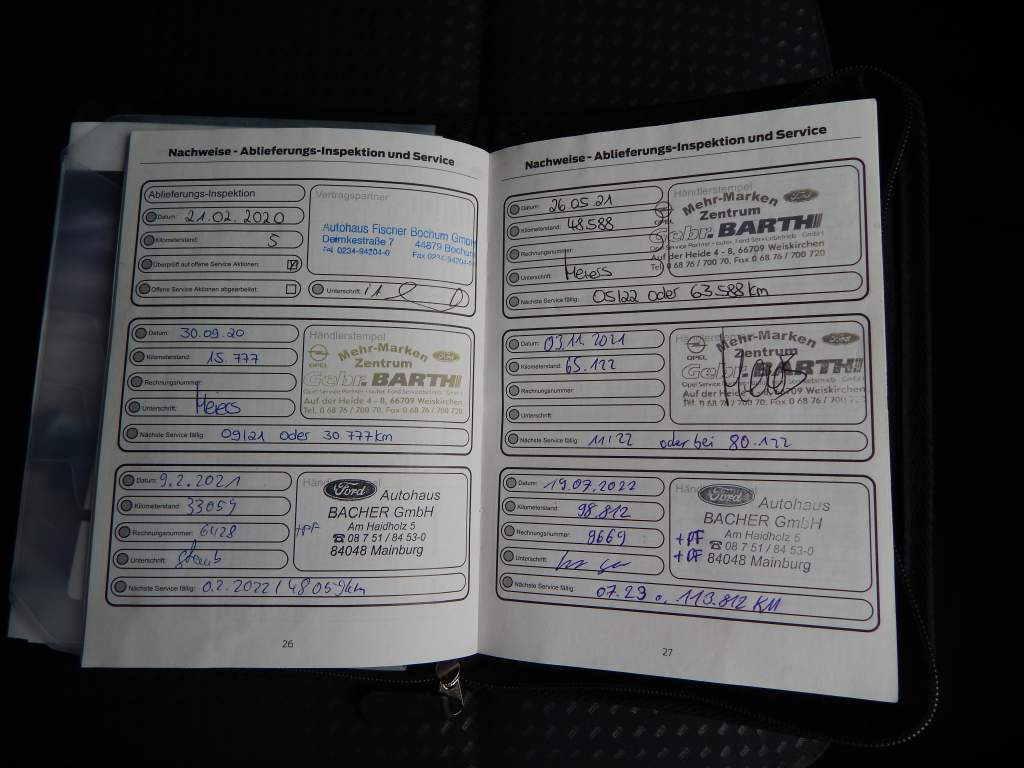 Nachweise - Ablieferungs-Inspektion und Service
Ablieferungs-Inspektion
Datum: 21.02.2020
Kilometerstand: 5
Überprüft auf offene Service Aktionen:
Offene Service Aktionen abgearbeitet:
Vertragspartner
Autohaus Fischer Bochum GmbH
Delmkestraße 7 44879 Bochum
Tel. 0234-94204-0 Fax 0234-94204-
Unterschrift:
Datum: 30.09.20
Kilometerstand: 15.777
Rechnungsnummer:
Unterschrift: Meiers
Händlerstempel
OPEL Mehr-Marken Ford
Zentrum
Gebr. BARTH
Opel Service Partner - autor. Ford Servicebetrieb GmbH
Auf der Heide 4 - 8, 66709 Weiskirchen
Tel. 0 68 76 / 700 70, Fax 0 68 76 / 700 720
Nächste Service fällig: 09/21 oder 30.777km
Datum: 9.2.2021
Kilometerstand: 33059
Rechnungsnummer: 6428
Unterschrift:
+PF
Ford Autohaus
BACHER GmbH
Am Haidholz 5
☎ 08 7 51 / 84 53-0
84048 Mainburg
Nächste Service fällig: 02.2022 / 48059km
26
Nachweise - Ablieferungs-Inspektion und Service
Datum: 26.05.21
Kilometerstand: 48.588
Rechnungsnummer:
Unterschrift: Meiers
Händlerstempel
OPEL Mehr-Marken Ford
Zentrum
Gebr. BARTH
Opel Service Partner - autor. Ford Servicebetrieb GmbH
Auf der Heide 4 - 8, 66709 Weiskirchen
Tel. 0 68 76 / 700 70, Fax 0 68 76 / 700 720
Nächste Service fällig: 05/22 oder 63.588km
Datum: 03.11.2021
Kilometerstand: 65.122
Rechnungsnummer:
Unterschrift:
Händlerstempel
OPEL Mehr-Marken Ford
Zentrum
Gebr. BARTH
Opel Service Partner - autor. Ford Servicebetrieb GmbH
Auf der Heide 4 - 8, 66709 Weiskirchen
Tel. 0 68 76 / 700 70, Fax 0 68 76 / 700 720
Nächste Service fällig: 11/22 oder bei 80.122
Datum: 19.07.2022
Kilometerstand: 98.812
Rechnungsnummer: 9669
Unterschrift:
Ford Autohaus
BACHER GmbH
Am Haidholz 5
+PF ☎ 08 7 51 / 84 53-0
+DF 84048 Mainburg
Nächste Service fällig: 07.23 o. 113.812 KM
27